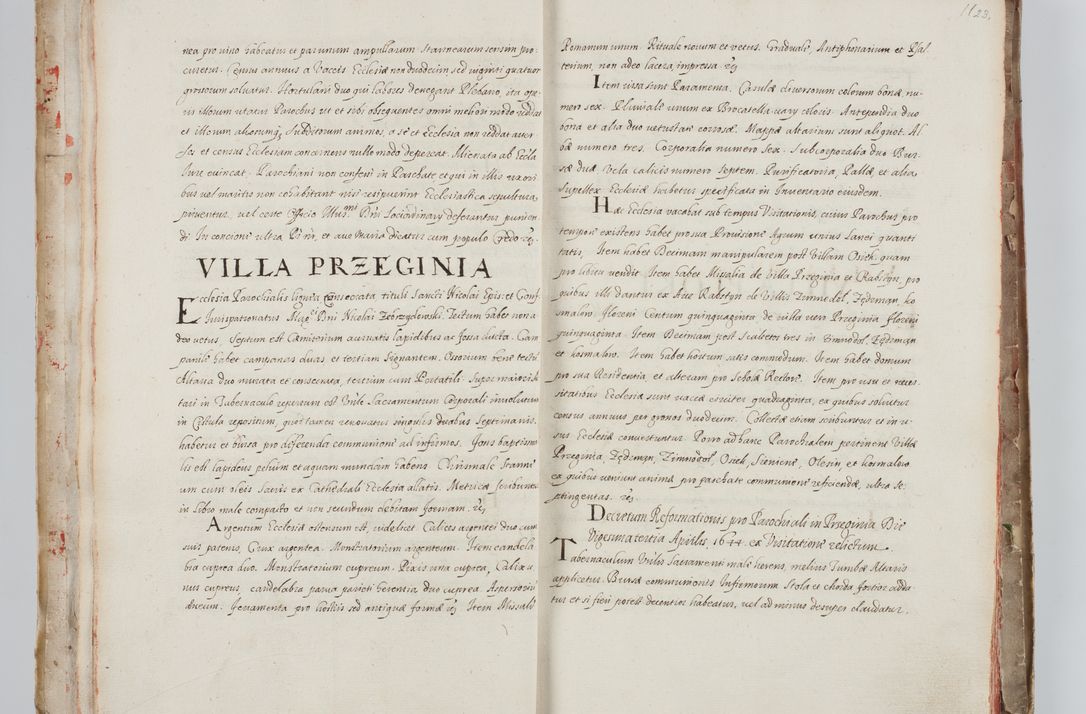 nea pro vino habeatur et par unum ampullarum stannearum sensim pro
curetur. Census annuus a Vaccis Ecclesiæ non duodecim sed viginti quatuor
grossorum solvatur. Hortulani duo qui labores denegant Plebano, ita ope
ris illorum utatur Parochus ut et sibi obsequentes omni meliori modo reddat
et illorum aliorumq, subditorum animos, a se et Ecclesia non reddat aver
sos et census Ecclesiam concernens nullo modo depereat.
sure evincat. Parochiani non confessi in Paschate et qui in illis uxori
bus vel maritis non cohabitant nisi resipuerint Ecclesiastica sepultura
priventur, vel certe Officio Illus.mi Dni Loci Ordinary deferantur punien
di. In concione ultra Pr nr, et ave Maria dicatur cum populo Credo
VILLA PRZEGINIA
Ecclesia Parochialis lignea Consecrata tituli Sancti Nicolai Epis: et Conf.
Jurispatronatus Mag.ci Dni Nicolai Zebrzydowski. Tectum habet non a
deo vetus, septum est Cæmiterium acervatis lapidibus ac fossa ducta. Cam
panile habet campanas duas, et tertiam signantem. Ossorium bene tectū
Altaria duo murata et consecrata, tertium cum Portatili. Super maiori Al
tari in Tabernaculo repertum est Vnle Sacramentum Corporali involutum
in Cistula repositum, quod tamen renovatur singulis duabus septimanis,
habetur et bursa pro defferenda communione ad infirmos. Fons baptisma
lis est lapideus pelvim et aquam mundam habens. Chrismale stanne
um cum oleis sacris ex Cathedrali Ecclesia allatis. Metrica scribuntur
in libro male compacto et non secundum debitam formam.
Argentum Ecclesiæ ostensum est, videlicet. Calices argentei duo cum
suis patenis, Crux argentea. Monstratorium argenteum. Item candela
bra cuprea duo. Monstratorium cupreum. Pixis una cuprea, Calix u
nus cupreus, candelabra parva parieti hærentia duo cuprea. Aspersoriū
æreum. Ferramenta pro hostiis sed antiquæ formæ Item Missale
1123.
Romanum unum. Rituale novum et vetus. Graduale, Antiphonarium et Psal
terium, non adeo lacera, impressa.
Item visa sunt Paramenta. Casulæ diversorum colorum bonæ, nu-
mero sex. Pluviale unum ex Brocatella vary coloris. Antependia duo
bona et alia duo vetustate corrosa. Mappæ altarium sunt aliquot. Al
bæ numero tres. Corporalia numero sex. Subcorporalia duo. Bur
sæ duæ. Vela calicis numero septem. Purificatoria, Pallæ, et alia
supellex Ecclesiæ habetur specificata in Inventario eiusdem.
Hæc Ecclesia vacabat sub tempus Visitationis, cuius Parochus pro
tempore existens habet pro sua Provisione Agrum unius Lanei quanti
tatis, Item habet Decimam manipularem post Villam Osiek quam
pro libitu vendit. Item habet Missalia de Villa Przeginia et Rabstyn, pro
quibus illi dantur ex Arce Rabstyn de Villis Zimnodol, Zędeman, ko
smalow, floreni Centum quinquaginta de villa vero Przeginia floreni
quinquaginta. Item Decimam post Scultetos tres in Zimnodol, Zędeman
et kosmalow. Item habet hortum satis commodum. Item habet domum
pro sua Residentia, et alteram pro Schola Rectore. Item pro usu et neces
sitatibus Ecclesiæ sunt vaccæ circiter quadraginta, ex quibus solvitur
census annuus, per grossos duodecim. Collectæ etiam scribuntur et in u-
sus Ecclesiæ convertuntur. Porro ad hanc Parochialem pertinent Villæ
Przeginia, Zędeman, Zimnodol, Osiek, Sieniczno, Olesin, et kosmalow
ex quibus veniunt animæ pro paschate communione reficiendæ, ultra se
ptingentas.
Decretum Reformationis pro Parochiali in Przeginia Die
Vigesima tertia Aprilis, 1644 ex Visitatione relictum.
Tabernaculum Vnlis Sacramenti male hærens, melius Tumbæ Altaris
applicetur. Bursæ communionis Infirmorum Stola et chorda fortior adda
tur et si fieri potest decentior habeatur, vel ad minus desuper claudatur.